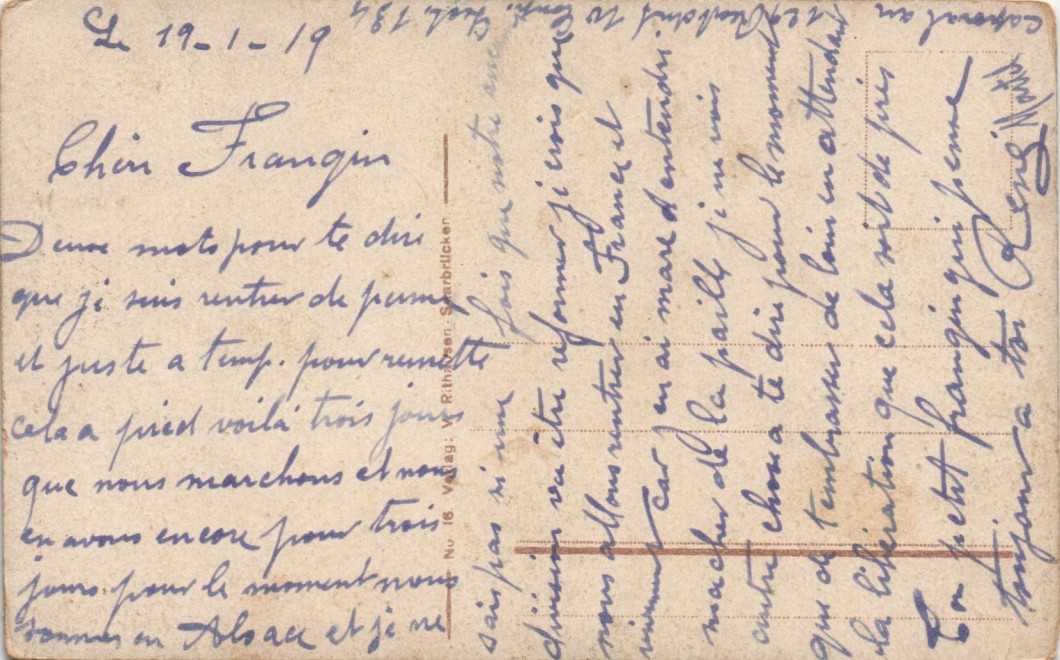 Le 19-1-19
Cher Frangin
Deux mots pour te dire
que je suis rentrer de perme
et juste a temp. pour remettre
cela a pied voilà trois jours
que nous marchons et nous
en avons encore pour trois
jours pour le moment nous
sommes en Alsace et je ne
sais pas si une fois que notre
division va être reformer je crois que
nous allons rentrer en France et
vivement car j'en ai marre d'entendre
marcher de la paille je ne vois
autre chose a te dire pour le moment
que de tembrasser de loin en attendant
la libération que cela soit de pres
Ton petit frangin qui pense
toujours a toi René
caporal au
134
No 16 Verlag: W. Rithausen, Saarbrücken